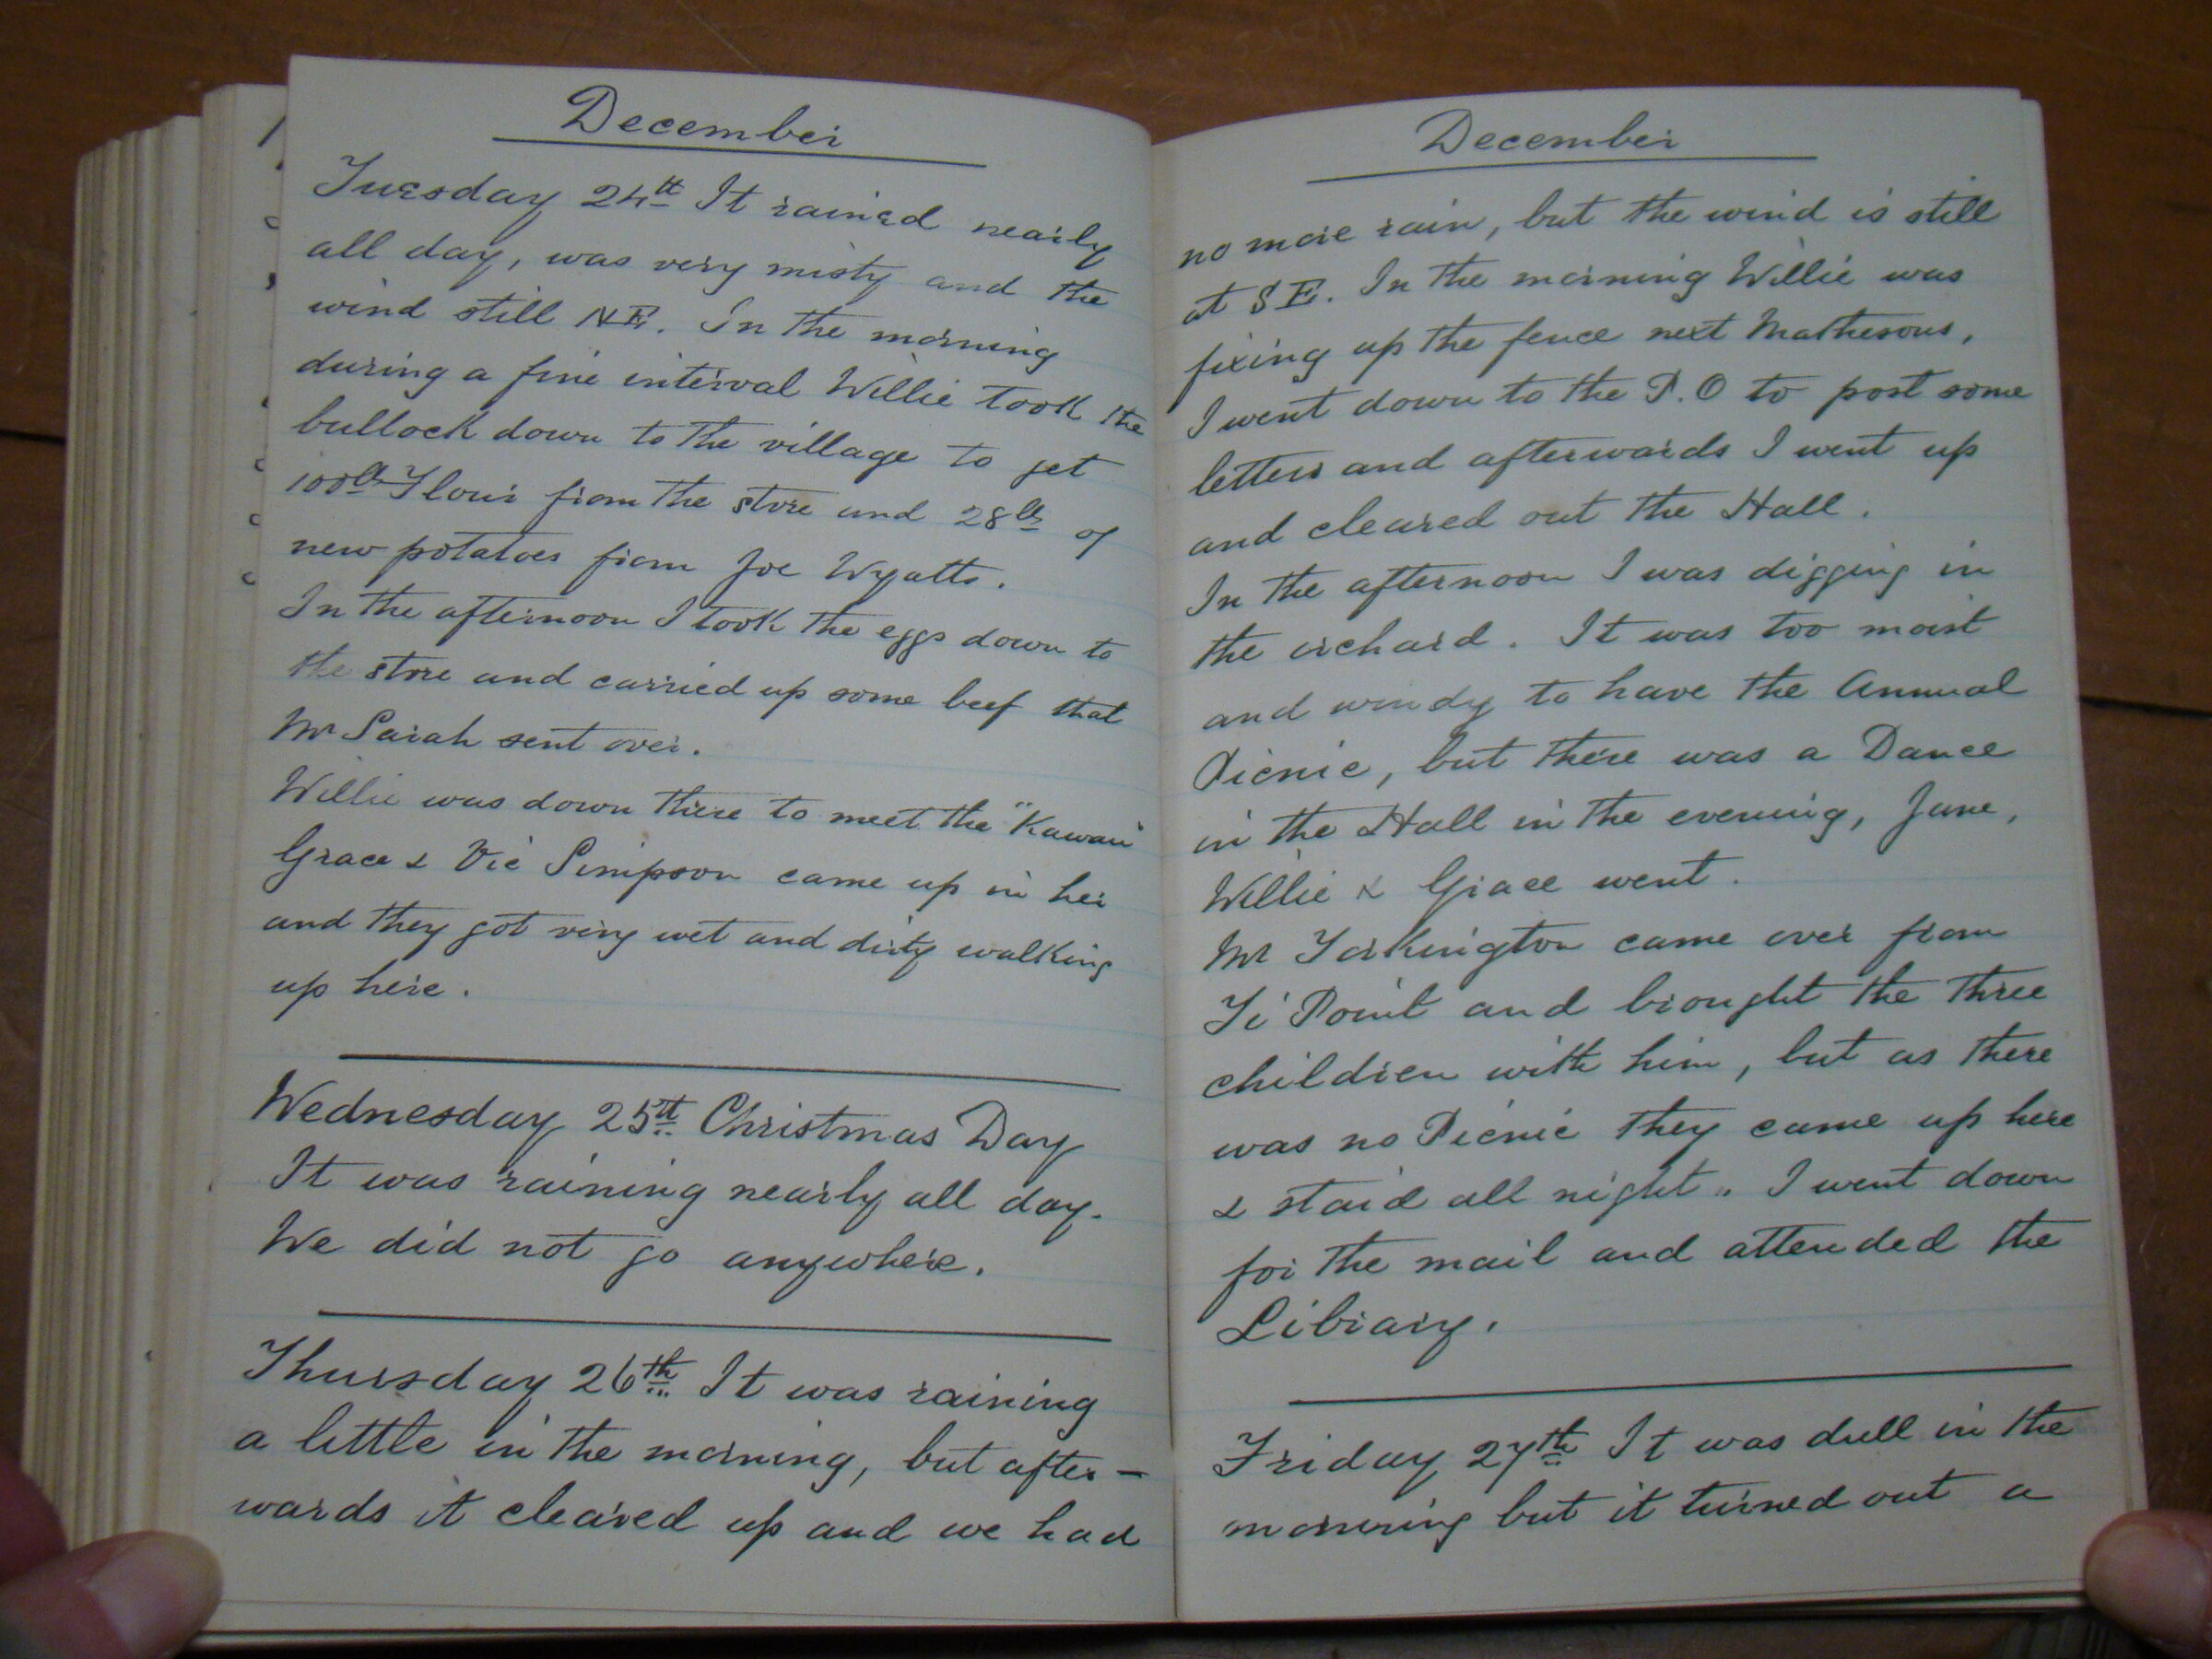 December
Tuesday 24th It rained nearly
all day, was very misty and the
wind still NE. In the morning
during a fine interval Willie took the
bullock down to the village to get
100lbs Flour from the store and 28lbs of
new potatoes from Joe Wyatts.
In the afternoon I took the eggs down to
the store and carried up some beef that
Mr Sarah sent over.
Willie was down there to meet the "Kawau"
Grace & Vic Simpson came up in her
and they got very wet and dirty walking
up here.
Wednesday 25th Christmas Day
It was raining nearly all day.
We did not go anywhere.
Thursday 26th It was raining
a little in the morning, but after-
wards it cleared up and we had
December
no more rain, but the wind is still
at SE. In the morning Willie was
fixing up the fence next Mathesons,
I went down to the P.O to post some
letters and afterwards I went up
and cleared out the Hall.
In the afternoon I was digging in
the orchard. It was too moist
and windy to have the Annual
Picnic, but there was a Dance
in the Hall in the evening, June,
Willie & Grace went.
Mr Torkington came over from
Ti Point and brought the three
children with him, but as there
was no Picnic they came up here
& staid all night. I went down
for the mail and attended the
Library.
Friday 27th It was dull in the
morning but it turned out a